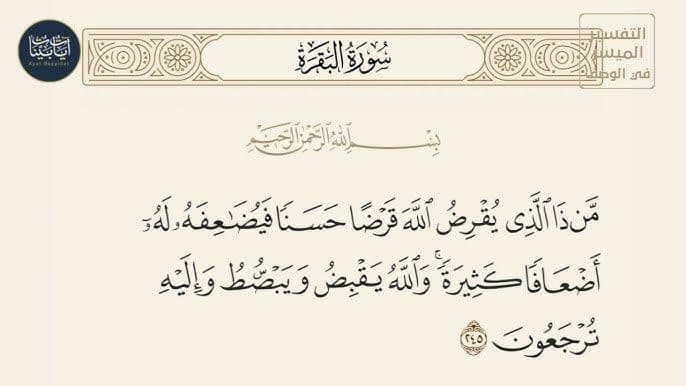 آيات بينات
Ayat Bayyinat
سُورَةُ البَقَرَةِ
التفسير
الميسر
في الوصف
بِسْمِ اللَّهِ الرَّحْمَٰنِ الرَّحِيمِ
مَّن ذَا ٱلَّذِي يُقْرِضُ ٱللَّهَ قَرْضًا حَسَنٗا فَيُضَٰعِفَهُۥ لَهُۥٓ
أَضْعَافٗا كَثِيرَةٗۚ وَٱللَّهُ يَقْبِضُ وَيَبْصُۜطُ وَإِلَيْهِ
تُرْجَعُونَ ٢٤٥